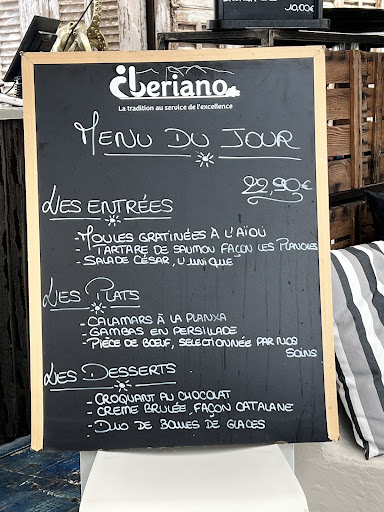 10,00€
iberiano
La tradition au service de l'excellence
MENU DU JOUR
22,90€
LES ENTRÉES
- MOULES GRATINÉES À L'AÏOLI
- TARTARE DE SAUMON FAÇON LES PLANCHES
- SALADE CÉSAR, "L'UNIQUE"
LES PLATS
- CALAMARS À LA PLANXA
- GAMBAS EN PERSILADE
- PIÈCE DE BŒUF, SELECTIONNÉE PAR NOS
SOINS
LES DESSERTS
- CROQUANT AU CHOCOLAT
- CREME BRULÉE, FAÇON CATALANE
- DUO DE BOULES DE GLACES